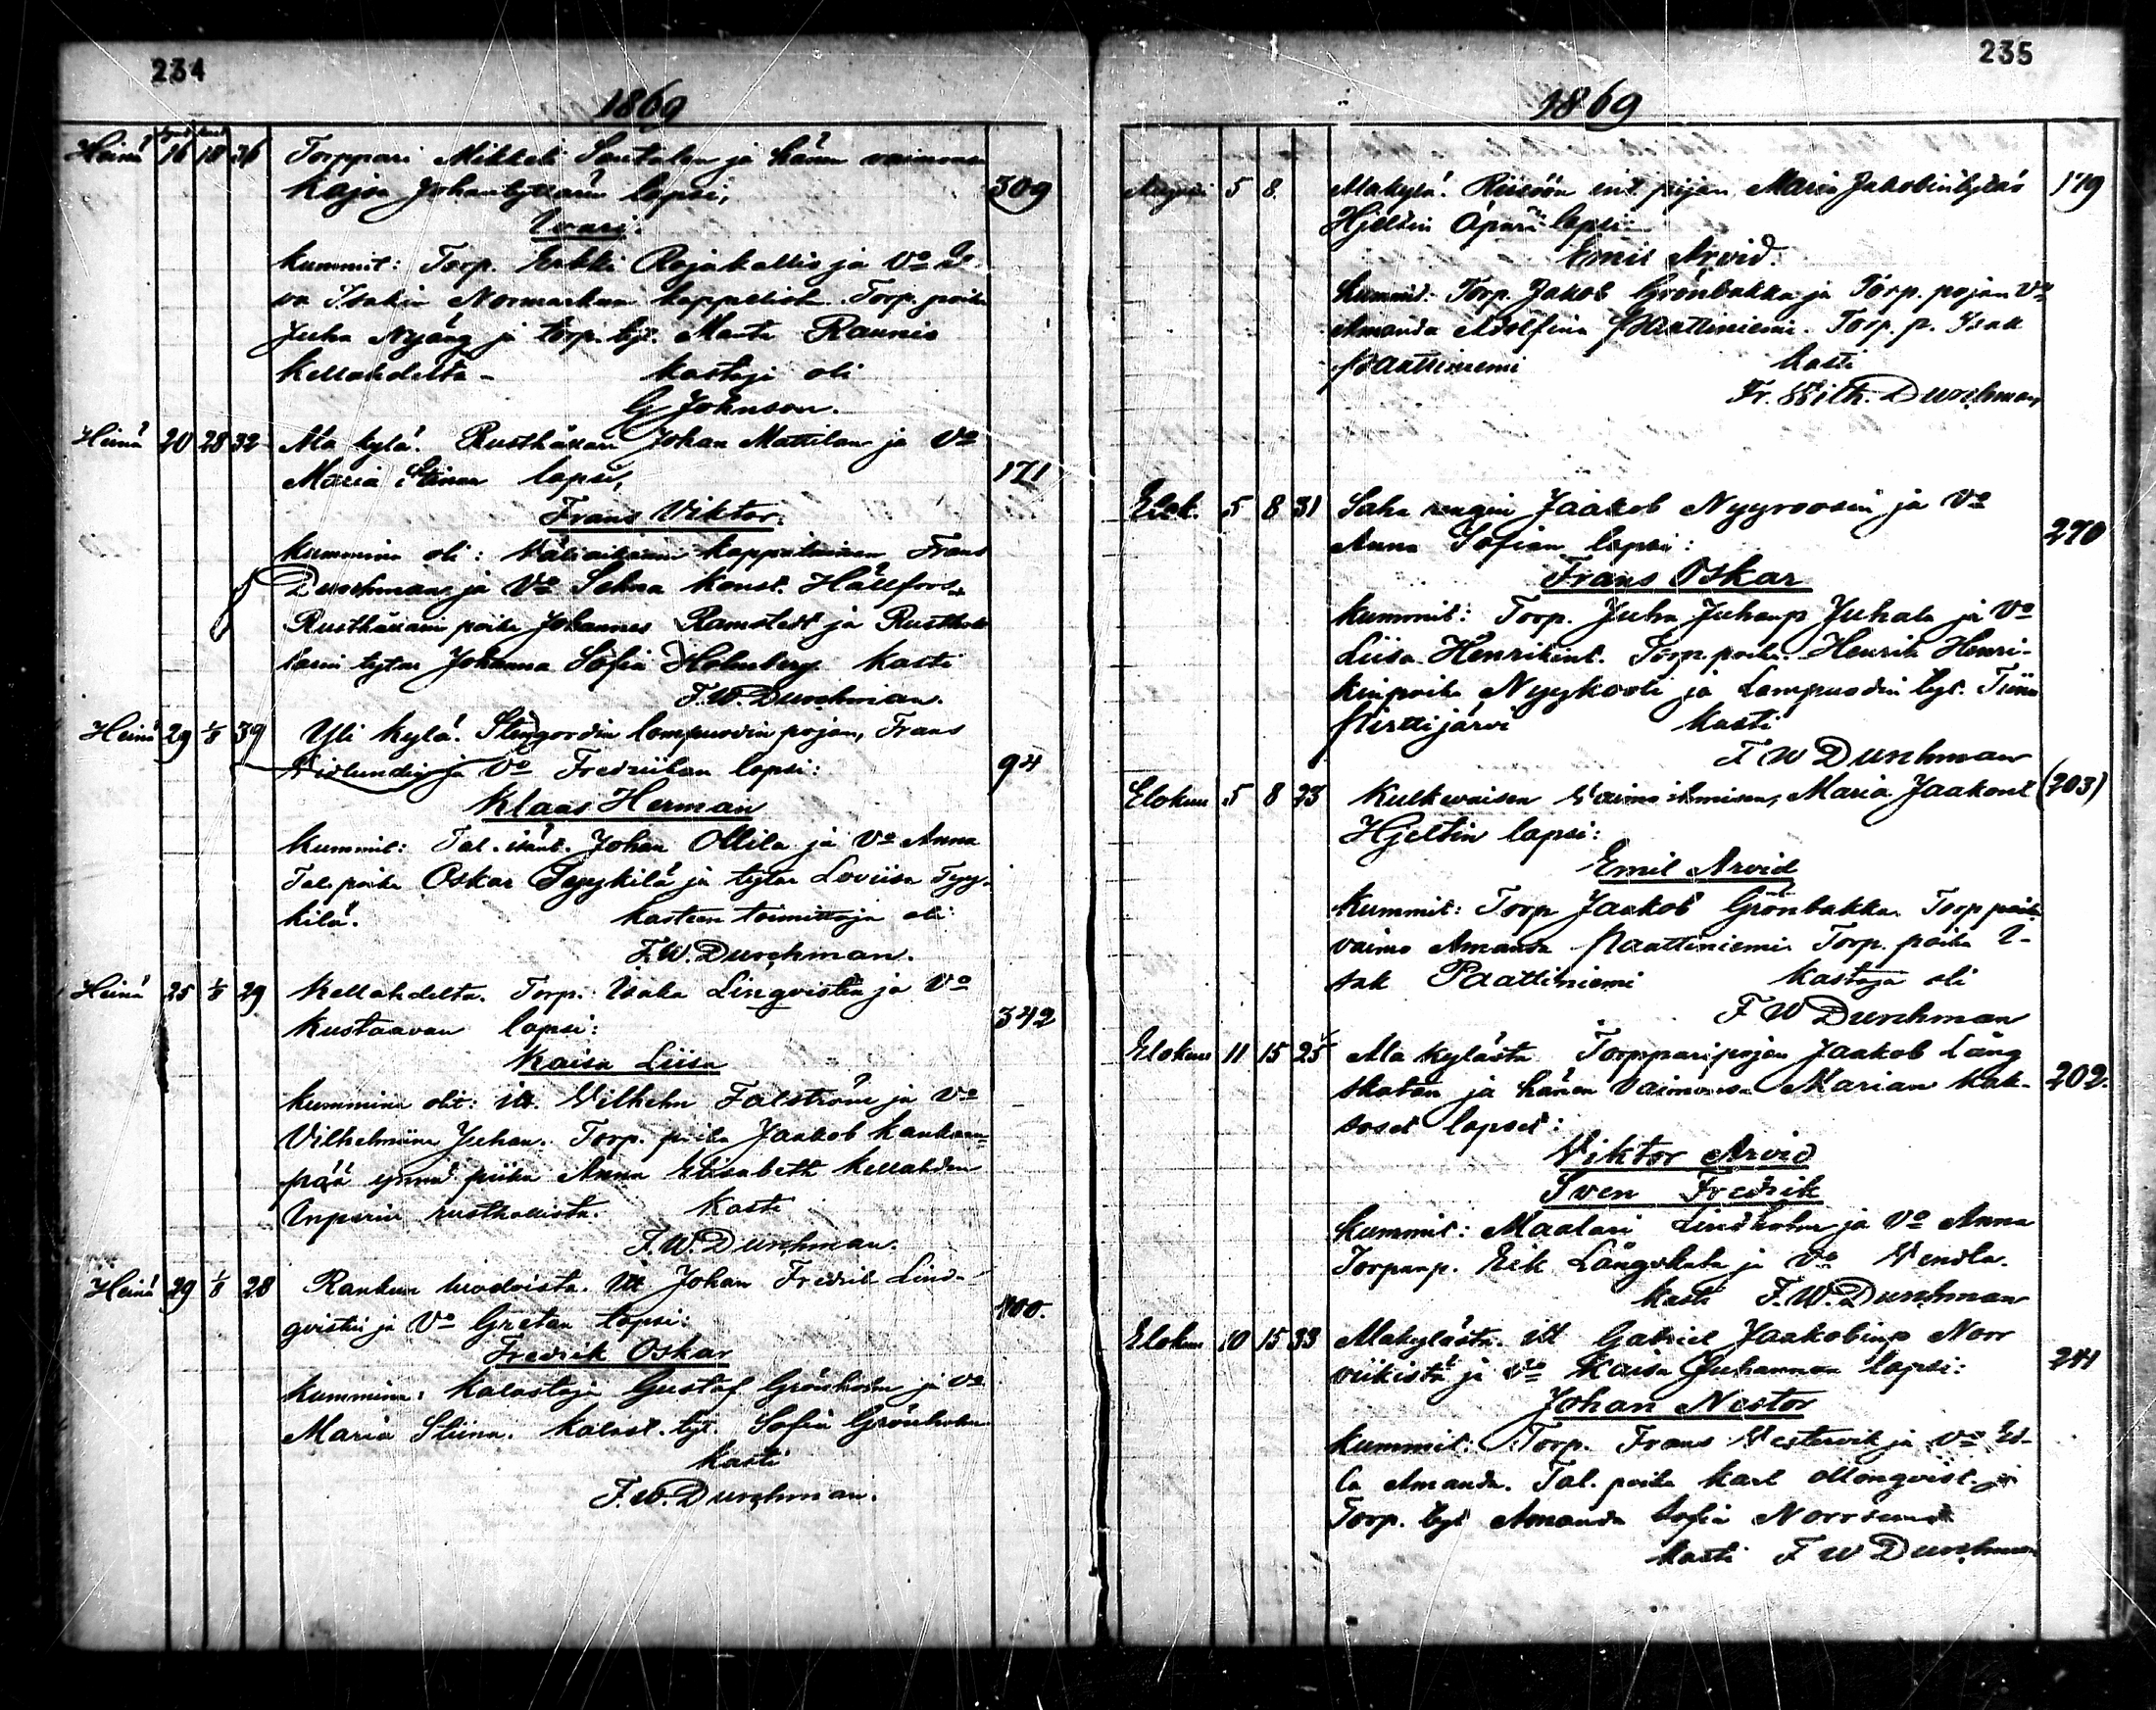 234
1869
Heinä 16 18 36 Torppari Mikkeli Santalan ja hänen vaimonsa
Kajsa Johantyttären lapsi, 309
Ivari.
Kummit: Torp. Erkki Rojakallio ja Vo
Normarkun kappelista. Torp. poika
Juha Nyäng ja torp. tyt. Manta Raunio
Kellahdelta - Kastaja oli
G Johnson.
Heinä 20 28 32 Ala kylä. Rusthållari Johan Mattilan ja Vo
Maria Stinan lapsi, 171
Frans Viktor.
Kummina oli: Väliaikainen kappalainen Frans
Durchman ja Vo Selma Konst. Hällfors.
Rusthållarin poika Johannes Ramstedt ja Rusthol
larin tytar Johanna Sofia Holmberg. Kasti
F.W. Durchman.
Heinä 29 1/8 39 Yli kylä. Stengordin lampuodin pojan, Frans
Vidlundin ja Vo Fredriikan lapsi: 94
Klaas Herman
Kummit: Tal. isänt. Johan Ollila ja Vo Anna
Tal. poika Oskar Tyykilä ja tytar Loviisa Tyy-
kilä. Kasteen toimittaja oli
F.W. Durchman.
Heinä 25 1/8 29 Kellahdelta. Torp. Isaka Linqvistin ja Vo
Kustaavan lapsi: 342
Kaisa Liisa
Kummina olit: itt. Vilhelm Falström ja Vo
Vilhelmiina Juhan. Torp. poika Jaakob Kankaan=
pää ynnä piika Anna Elisabeth Kellahden
Inperin rusthollista. Kasti
F.W. Durchman.
Heinä 29 1/8 28 Rankun luodoista. itt Johan Fredrik Lind-
qvistin ja Vo Gretan lapsi: 400.
Fredrik Oskar
Kummina: Kalastaja Gustaf Grönholm ja Vo
Maria Stiina. Kalast. tyt. Sofia Grönholm
Kasti
F.W. Durchman.
235
1869
5 8. Alakylä. pijan Maria Jakobintytär 179
Hjeltin Äpärä lapsi
Emil Arvid.
Kummit: Torp. Jakob Grönbakka ja Torp. pojan Vo
Amanda Adolfina Paattiniemi. Torp. p. Isak
Paattiniemi Kasti
Fr. Wilh. Durchman
Elok. 5 8 31 Saha rengin Jaakob Nyyroosin ja Vo
Anna Sofian lapsi: 270
Frans Oskar
Kummit: Torp. Juha Juhanp Juhala ja Vo
Liisa Henrikint. Torp. poika Henrik Henri-
kinpoika ja Lampuodin tyt. Tiina
Pirttijärvi Kasti
F W Durchman
Elokuu 5 8 23 Kulkevaisen Vaimo ihmisen, Maria Jaakont (203)
Hjeltin lapsi:
Emil Arvid
Kummit: Torp Jaakob Grönbakka. Torp poika
vaimo Amanda Paattiniemi. Torp. poika I-
sak Paattiniemi Kastaja oli
F W Durchman
Elokuu 11 15 25 Ala kylästä Torpparipojan Jaakob Lång
skatan ja hänen Vaimonsa Marian Kak- 202.
soset lapset:
Viktor Arvid
Sven Fredrik
Kummit: Maalari Lindholm ja Vo Anna
Torpanp. Erik Långskata ja Vo Vendla.
Kasti F.W. Durchman
Elokuu 10 15 33 Alakylästä. itt Gabriel Jaakobinp Norr
viikistä ja Vo Kaisa Juhannan lapsi: 241
Johan Nestor
Kummit: Torp. Frans Vestervik ja Vo Ed-
la Amanda. Tal. poika Karl Malmqvist ja
Torp. tyt Amanda Sofia Norrsund
Kasti F W Durchman